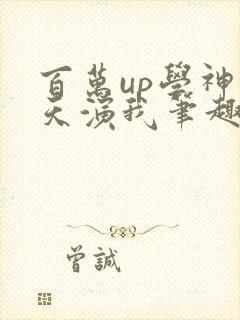 百萬up學神
天演我筆趣
曾誠